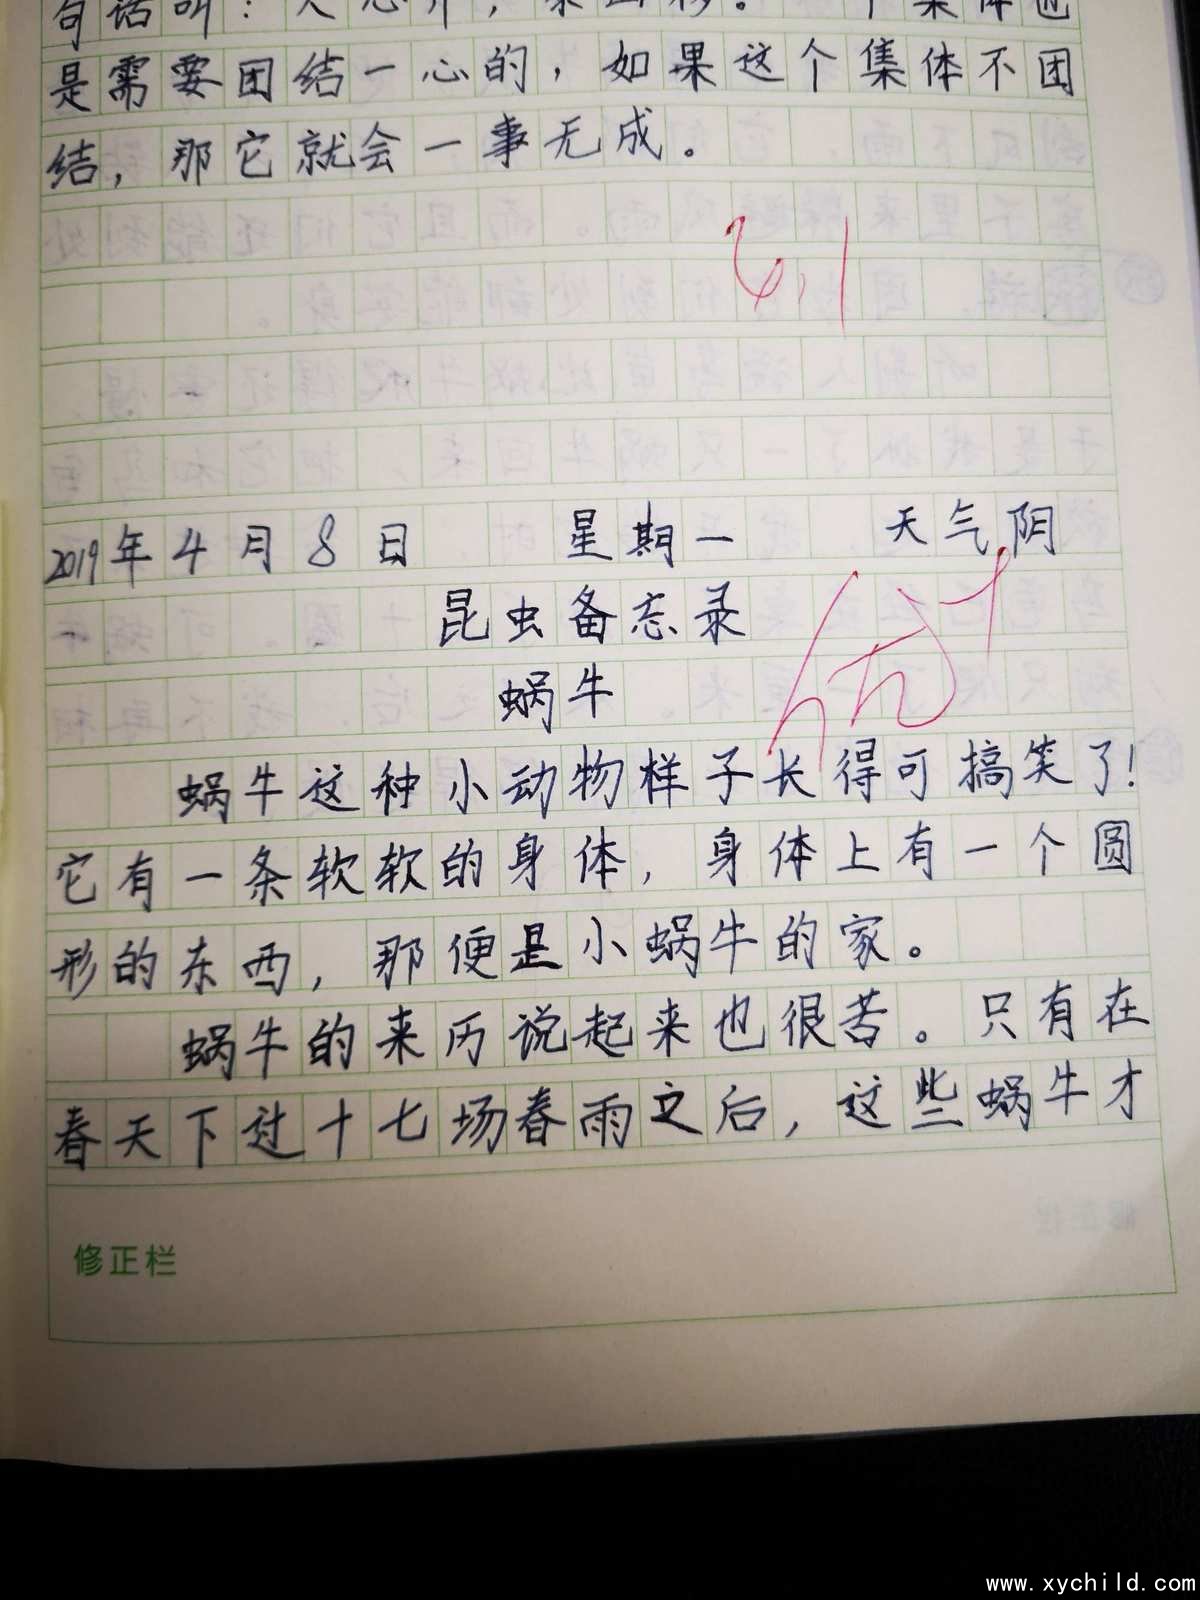 句话叫：人心齐，泰山移。一个集体也
是需要团结一心的，如果这个集体不团
结，那它就会一事无成。
2019年4月8日 星期一 天气阴
昆虫备忘录
蜗牛
蜗牛这种小动物样子长得可搞笑了！
它有一条软软的身体，身体上有一个圆
形的东西，那便是小蜗牛的家。
蜗牛的来历说起来也很苦。只有在
春天下过十七场春雨之后，这些蜗牛才
修正栏
www.xychild.com